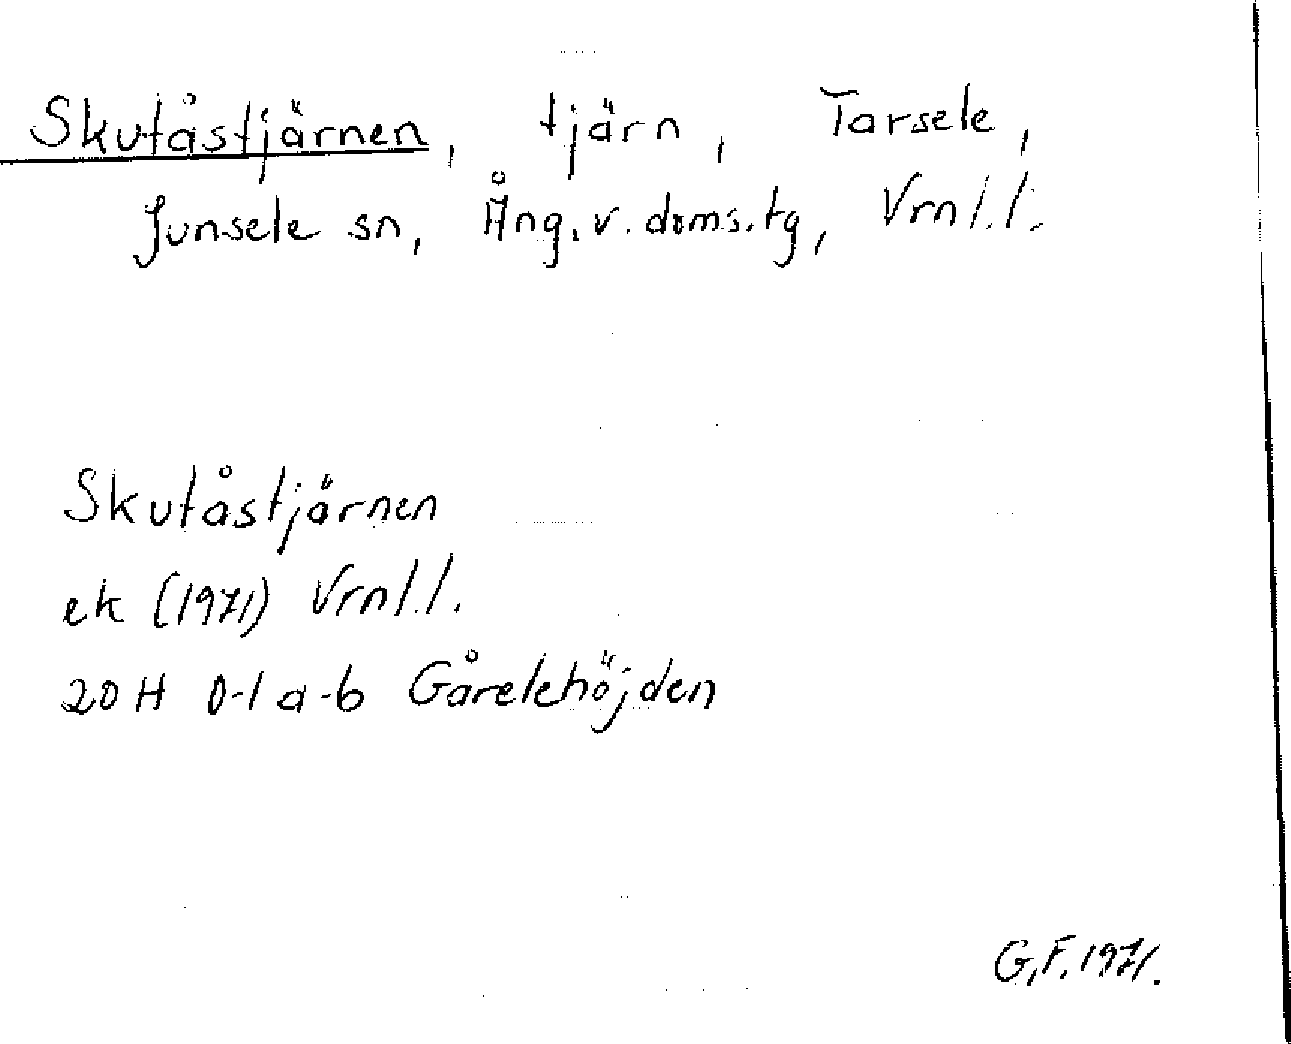 Skutåstjärnen, tjärn, Tarsele,
Junsele sn, Ång.v.doms.tg, Vrnl.l.
Skutåstjärnen
ek (1971) Vrnl.l.
20 H 0-1 a-b Gårelehöjden
G.F. 1971.